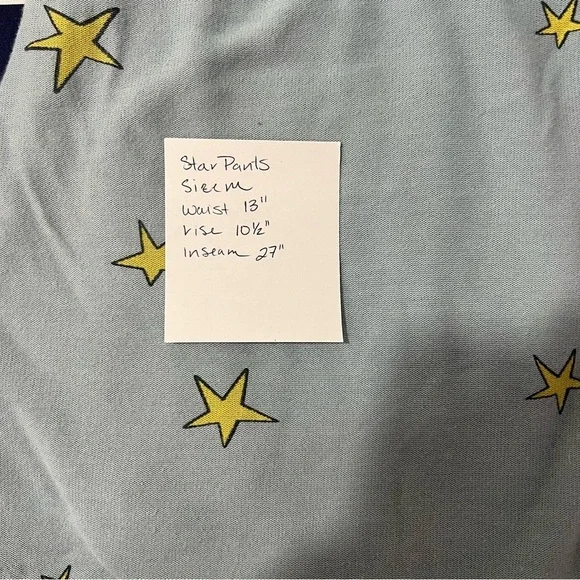 Star Pants
Size M
Waist 13"
rise 10½"
Inseam 27"